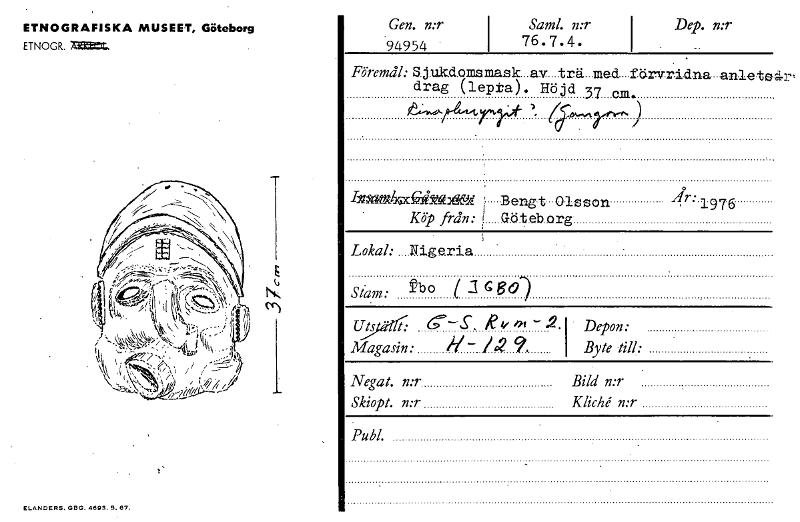 ETNOGRAFISKA MUSEET, Göteborg
ETNOGR.
37 cm
ELANDERS. GBG. 4693. 5. 67.
Gen. n:r Saml. n:r Dep. n:r
94954 76.7.4.
Föremål: Sjukdomsmask av trä med förvridna anlets
drag (lepra). Höjd 37 cm.
? (Gangosa)
Insaml. Gåva av:
Köp från: Bengt Olsson År: 1976
Göteborg
Lokal: Nigeria
Stam: Ibo (IGBO)
Utställt: G-S. Rum-2. Depon:
Magasin: H-129. Byte till:
Negat. n:r Bild n:r
Skiopt. n:r Kliché n:r
Publ.